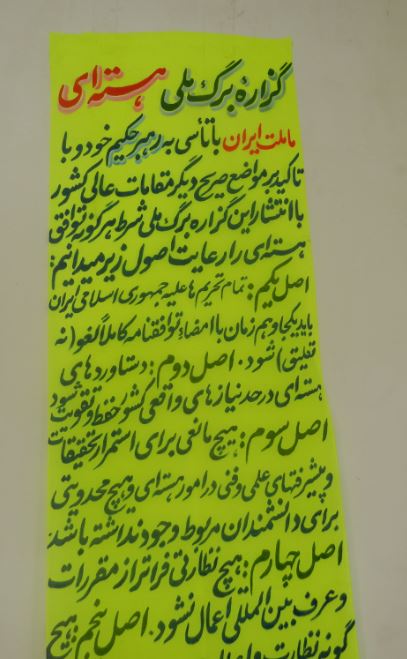 گزاره برگ ملی هسته‌ای
ما ملت ایران با تأسی به رهبر حکیم خود و با
تاکید بر مواضع صریح دیگر مقامات عالی کشور
با انتشار این گزاره برگ ملی شرط هرگونه توافق
هسته‌ای را رعایت اصول زیر میدانیم:
اصل یکم: تمام تحریم‌ها علیه جمهوری اسلامی ایران
باید یکجا و هم زمان با امضاء توافقنامه کاملاً لغو (نه
تعلیق) شود. اصل دوم: دستاوردهای
هسته‌ای در حد نیازهای واقعی کشور حفظ و تقویت شود
اصل سوم: هیچ مانعی برای استمرار تحقیقات
و پیشرفتهای علمی و فنی در امور هسته‌ای و هیچ محدویتی
برای دانشمندان مربوط وجود نداشته باشد
اصل چهارم: هیچ نظارتی فراتر از مقررات
و عرف بین المللی اعمال نشود. اصل پنجم: هیچ
گونه نظارت